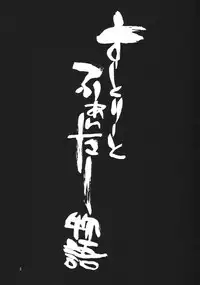 すとりーと
ふぁいたー
物語